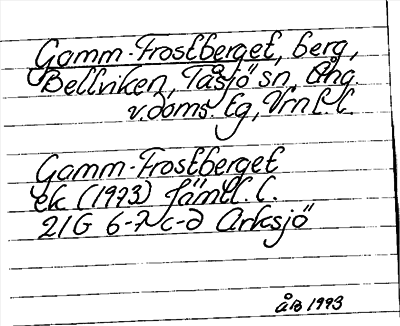 Gamm-Frostberget, berg,
Bellviken, Tåsjö sn, Ång.
v.doms. tg, Vrnl. l.
Gamm-Frostberget
ek (1973) Jämtl. l.
21G 6-7 c-d Arksjö
ÅB 1993